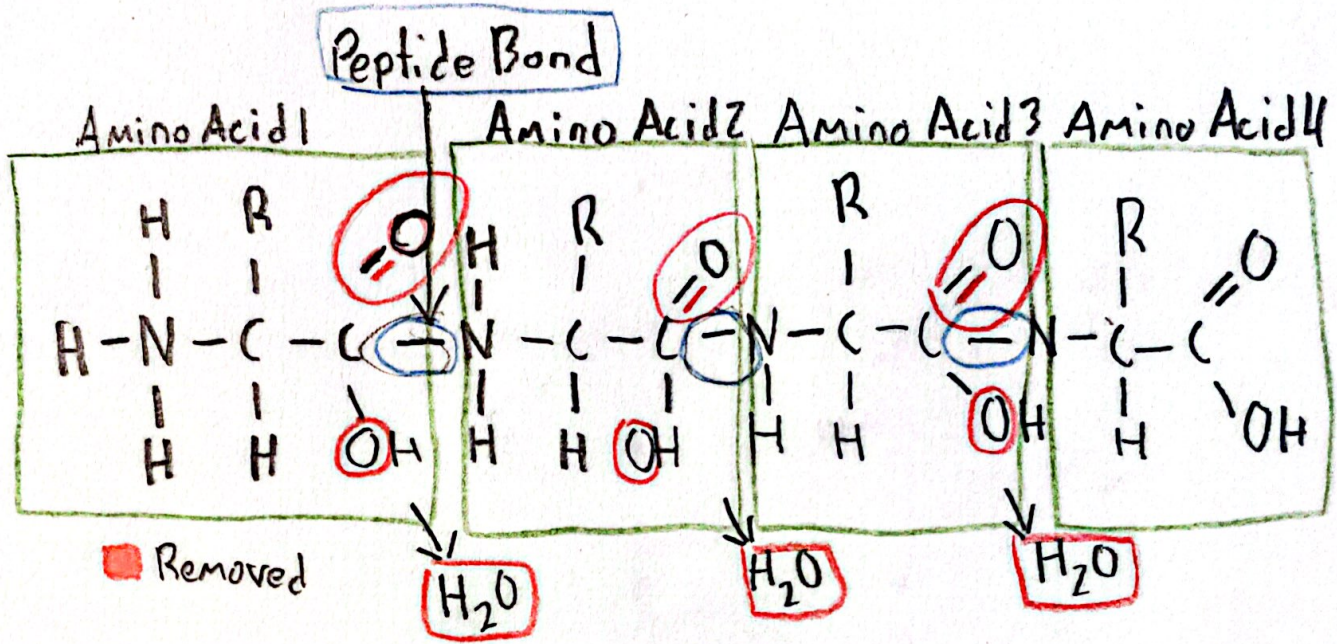 Peptide Bond
Amino Acid 1 Amino Acid 2 Amino Acid 3 Amino Acid 4
H R O H R O R O R O
H-N-C-C-N-C-C-N-C-C-N-C-C
H H OH H H OH H H OH H OH
Removed H2O H2O H2O